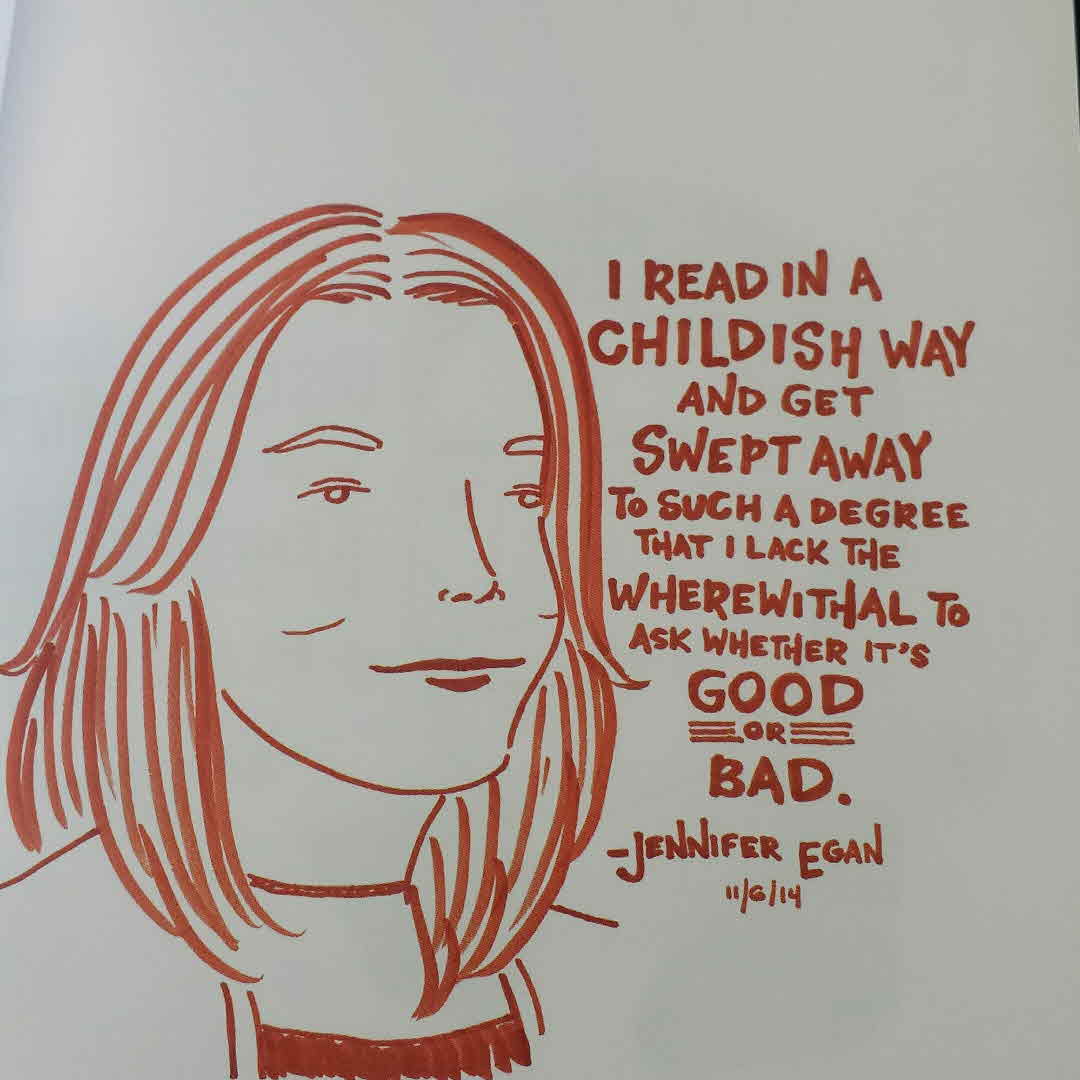 I READ IN A
CHILDISH WAY
AND GET
SWEPT AWAY
TO SUCH A DEGREE
THAT I LACK THE
WHEREWITHAL TO
ASK WHETHER IT'S
GOOD
OR
BAD.
-JENNIFER EGAN
11/6/14